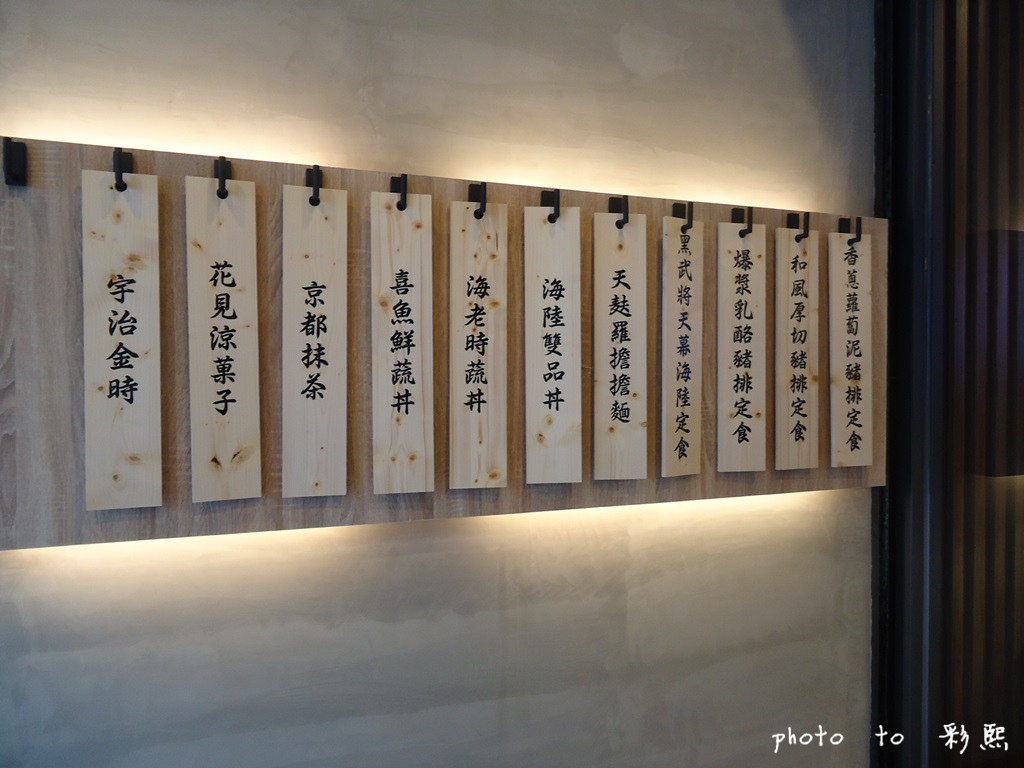 香蔥蘿蔔泥豬排定食
和風厚切豬排定食
爆漿乳酪豬排定食
黑武將天幕海陸定食
天麩羅擔擔麵
海陸雙品丼
海老時蔬丼
喜魚鮮蔬丼
京都抹茶
花見涼菓子
宇治金時
photo to 彩熙